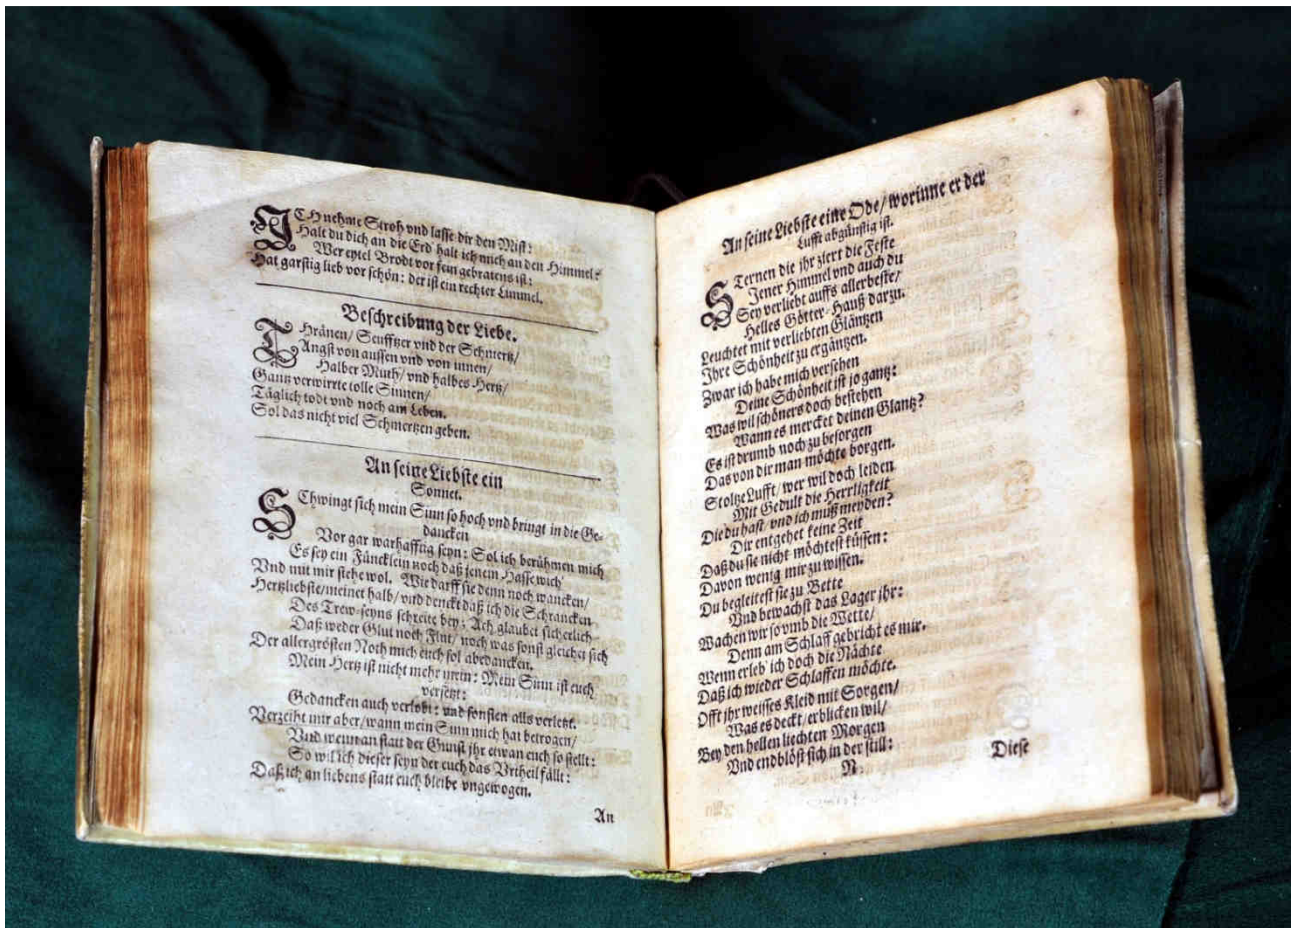 ICH nehme Stroh vnd lasse dir den Mist:
Halt du dich an die Erd halt ich mich an den Himmel:
Wer eytel Brodt vor fein gebratens ist:
Hat garstig lieb vor schön: der ist ein rechter Lümmel.
Beschreibung der Liebe.
THränen/ Seufftzer vnd der Schmertz/
Angst von aussen vnd von innen/
Halber Muth/ vnd halbes Hertz/
Gantz verwirrte tolle Sinnen/
Täglich todt vnd noch am Leben.
Sol das nicht viel Schmertzen geben.
An seine Liebste ein
Sonnet.
SChwingt sich mein Sinn so hoch vnd bringt in die Ge-
dancken
Vor gar warhafftig seyn: Sol ich berühmen mich
Es sey ein Füncklein noch daß jenem Hasse wich'
Vnd mit mir stehe wol. Wie darff sie denn noch wancken/
Hertzliebste/ meinet halb/ vnd denckt daß ich die Schrancken
Des Trew-seyns schreite bey; Ach glaubet sicherlich
Daß weder Glut noch Flut/ noch was sonst gleichet sich
Der allergrösten Noth mich euch sol abedancken.
Mein Hertz ist nicht mehr mein: Mein Sinn ist euch
versetzt:
Gedancken auch verlobt: vnd sonsten alls verletzt.
Verzeiht mir aber/ wann mein Sinn mich hat betrogen/
Vnd wenn man statt der Gunst jhr etwan euch so stellt:
So wil ich dieser seyn der euch das Vrtheil fällt:
Daß ich an liebens statt euch bleibe vngewogen.
An
An seine Liebste eine Ode/ worinne er der
Lufft abgünstig ist.
STernen die jhr ziert die Feste
Jener Himmel vnd auch du
Sey verliebt auffs allerbeste/
Helles Götter-Hauß darzu.
Leuchtet mit verliebten Gläntzen
Ihre Schönheit zu ergäntzen.
Zwar ich habe mich versehen
Deine Schönheit ist jo gantz:
Was wil schöners doch bestehen
Wann es mercket deinen Glantz?
Es ist drumb noch zu besorgen
Das von dir man möchte borgen.
Stoltze Lufft/ wer wil doch leiden
Mit Gedult die Herrligkeit
Die du hast/ vnd ich muß meyden?
Dir entgehet keine Zeit
Daß du sie nicht möchtest küssen:
Davon wenig mir zu wissen.
Du begleitest sie zu Bette
Vnd bewachst das Lager jhr:
Wachen wir so vmb die Wette/
Denn am Schlaff gebricht es mir.
Wenn erleb' ich doch die Nächte
Daß ich wieder Schlaffen möchte.
Offt jhr weisses Kleid mit Sorgen/
Was es deckt/ erblicken wil/
Bey den hellen liechten Morgen
Vnd endblöst sich in der still:
N
Diese